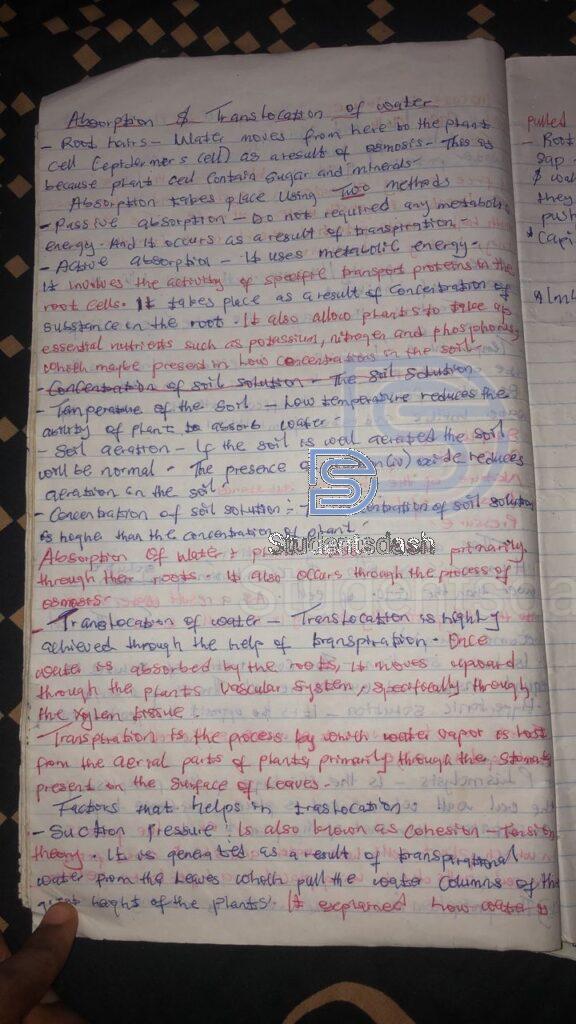 Absorption & Translocation of water
- Root hairs - Water moves from here to the plant
cell (epidermer's cell) as a result of osmosis - This is
because plant cell contain sugar and minerals.
Absorption takes place using Two methods
- Passive absorption - Do not required any metabolic
energy. And it occurs as a result of transpiration.
- Active absorption - It uses metabolic energy.
It involves the activity of specific transport proteins in the
root cells. It takes place as a result of concentration of
substance in the root. It also allow plants to take up
essential nutrients such as potassium, nitrogen and phosphorus,
which maybe present in low concentrations in the soil.
- Concentration of soil solution - The soil solution
- Temperature of the soil - Low temperature reduces the
ability of plant to absorb water.
- Soil aeration - If the soil is well aerated the soil
will be normal. The presence (iv) oxide reduces
aeration in the soil.
- Concentration of soil solution :- concentration of soil solution
is higher than the concentration of plant.
Studentsdash
Absorption of water primarily
through their roots. It also occurs through the process of
osmosis.
- Translocation of water - Translocation is highly
achieved through the help of transpiration. Once
water is absorbed by the roots, it moves upward
through the plants vascular system, specifically through
the xylem tissue.
- Transpiration is the process by which water vapor is lost
from the aerial parts of plants, primarily through the stomata
present on the surface of leaves.
Factors that helps in traslocation
- Suction Pressure : Is also known as cohesion - Tension
theory. It is generated as a result of transpirational
water from the leaves which pull the water columns of the
height of the plants. It explained how water is
pulled
- Root
sap
& wat
they
push
Capi